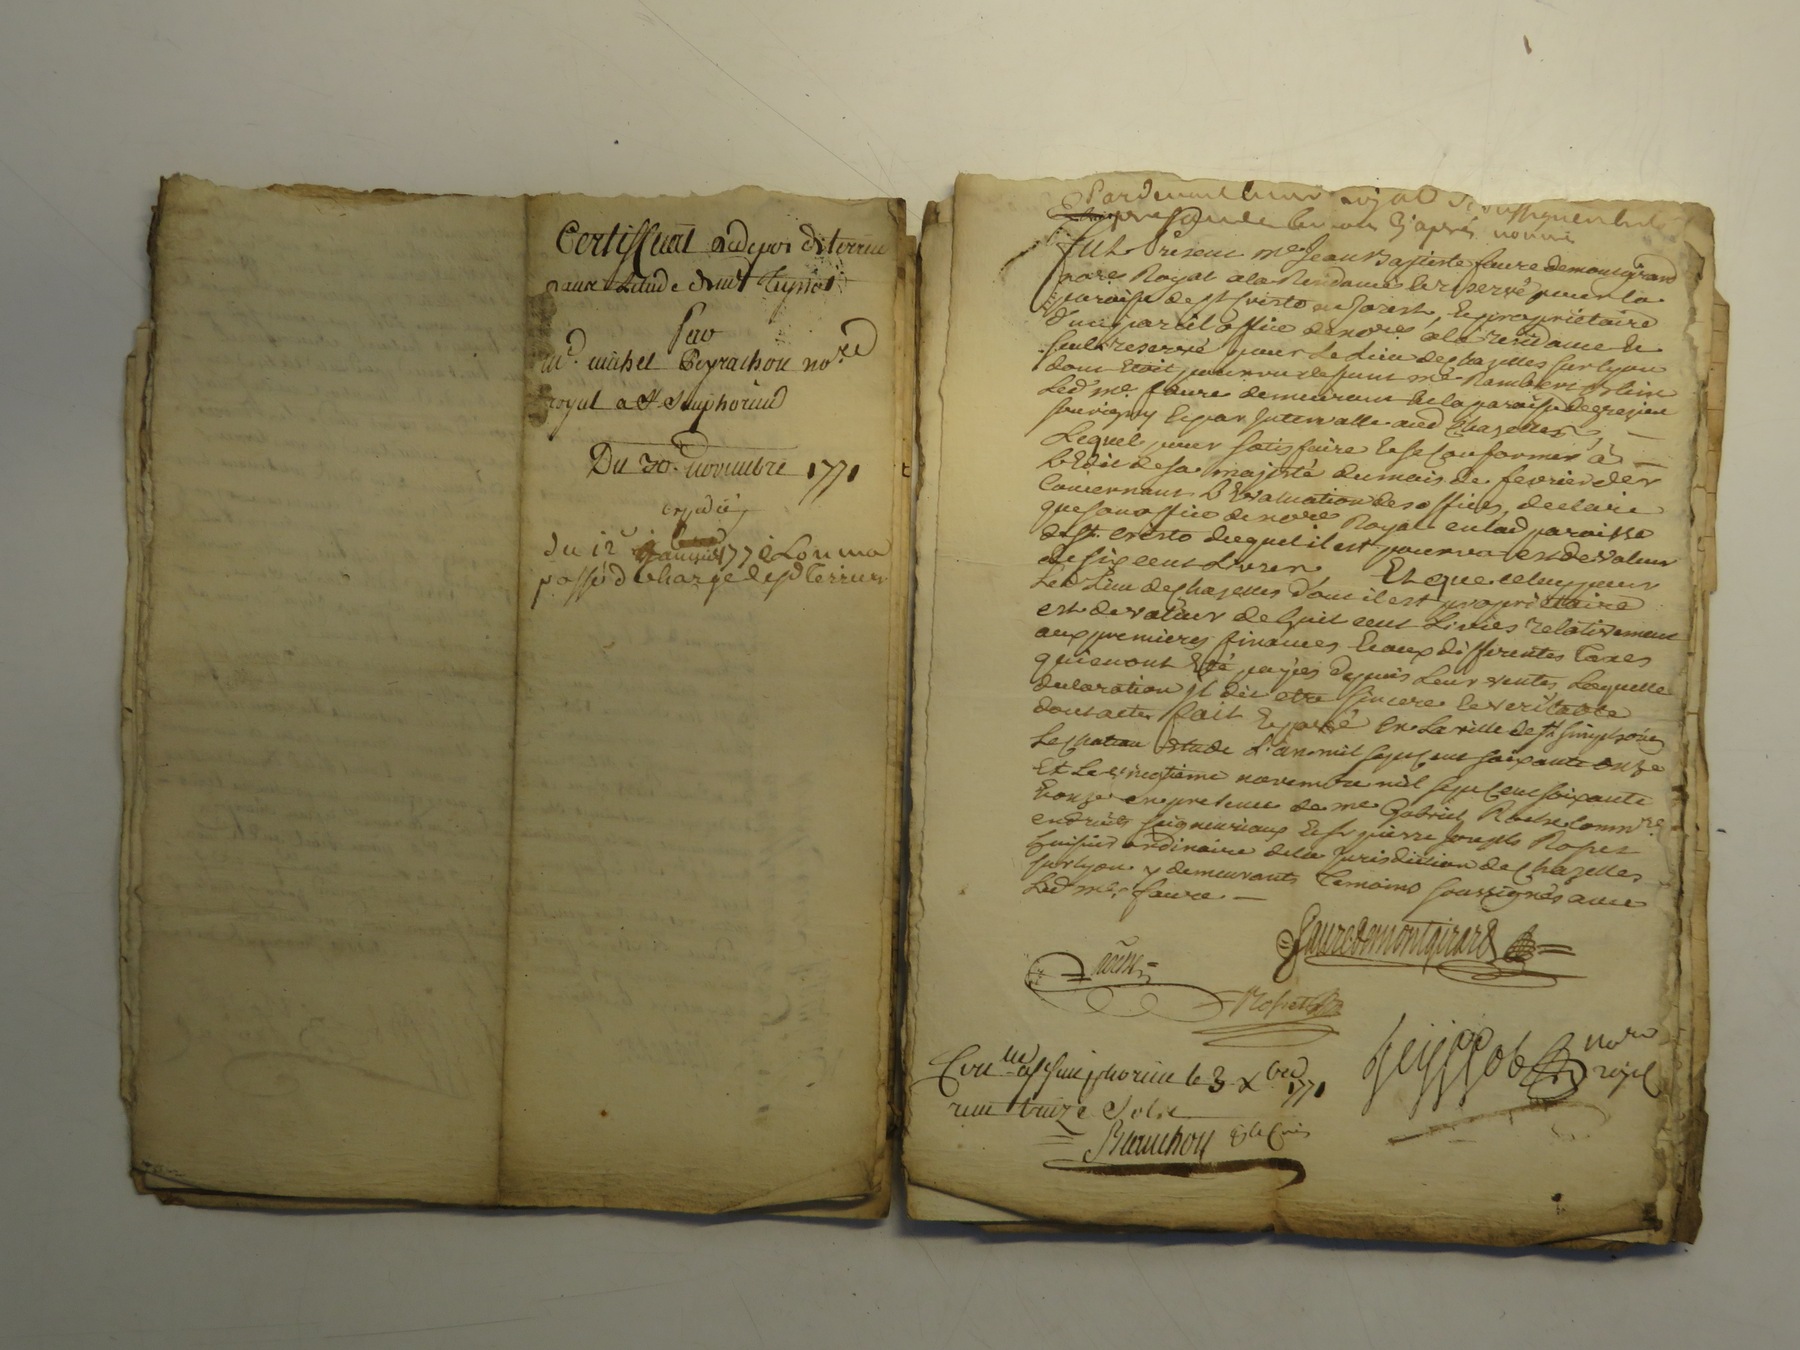 Certifficat de depos de terrier
dans Letude dud
Par
Me. michel Peyrachon nore
royal a St. Simphorien
Du 30. novembre 1771
expedié
du 12e janvier 177 Lon ma
passé d charge desd Terriers
Pardevant royal soussigné
presents temoins Cy après nommés
fut Présent me Jean Baptiste faure demontgirard
nore Royal a la Residance & reservé pour la
paroisse de St Cristo en forest, & propriétaire
d'un pareil office de nore a la residance &
seul reservé pour Le Lieu de chazelles sur Lyon
dont Etoit pourvu defunt me Rambert
Led. me. faure demeurant En la paroisse de grezieu
souvigny & par Intervalle aud Chazelles, —
Lequel pour satisfaire & se Conformer à —
L'Edit de sa majesté du mois de fevrier der
Concernant L'Evaluation des offices, declare
que son office de nore Royal en lad. paroisse
de St. cristo duquel il est pourvu est de valeur
de six cent Livres Et que celuy pour
Led Lieu de chazelles dont il est propriettaire
est de valeur de huit cent Livres relativement
aux premieres finances & aux differentes Taxes
qui en ont Eté payées depuis Leur ventes, Laquelle
declaration il dit etre sincere & veritable
dont acte, fait & passé En La ville de St. Simphorien
Le chateau Etude L'an mil sept cent soixante onze
Et Le vingtieme novembre mil sept cent soixante
& onze en presence de me Gabriel commre
en droits seigneuriaux & sr. pierre joseph
huissier ordinaire de la Jurisdiction de chazelles
sur Lyon y demeurants Temoins soussignés avec
Led me. faure —
fauredemontgirard
nore
royal
Conlle a St Simphorien le 3 Xbre 1771
reçu treize Sols